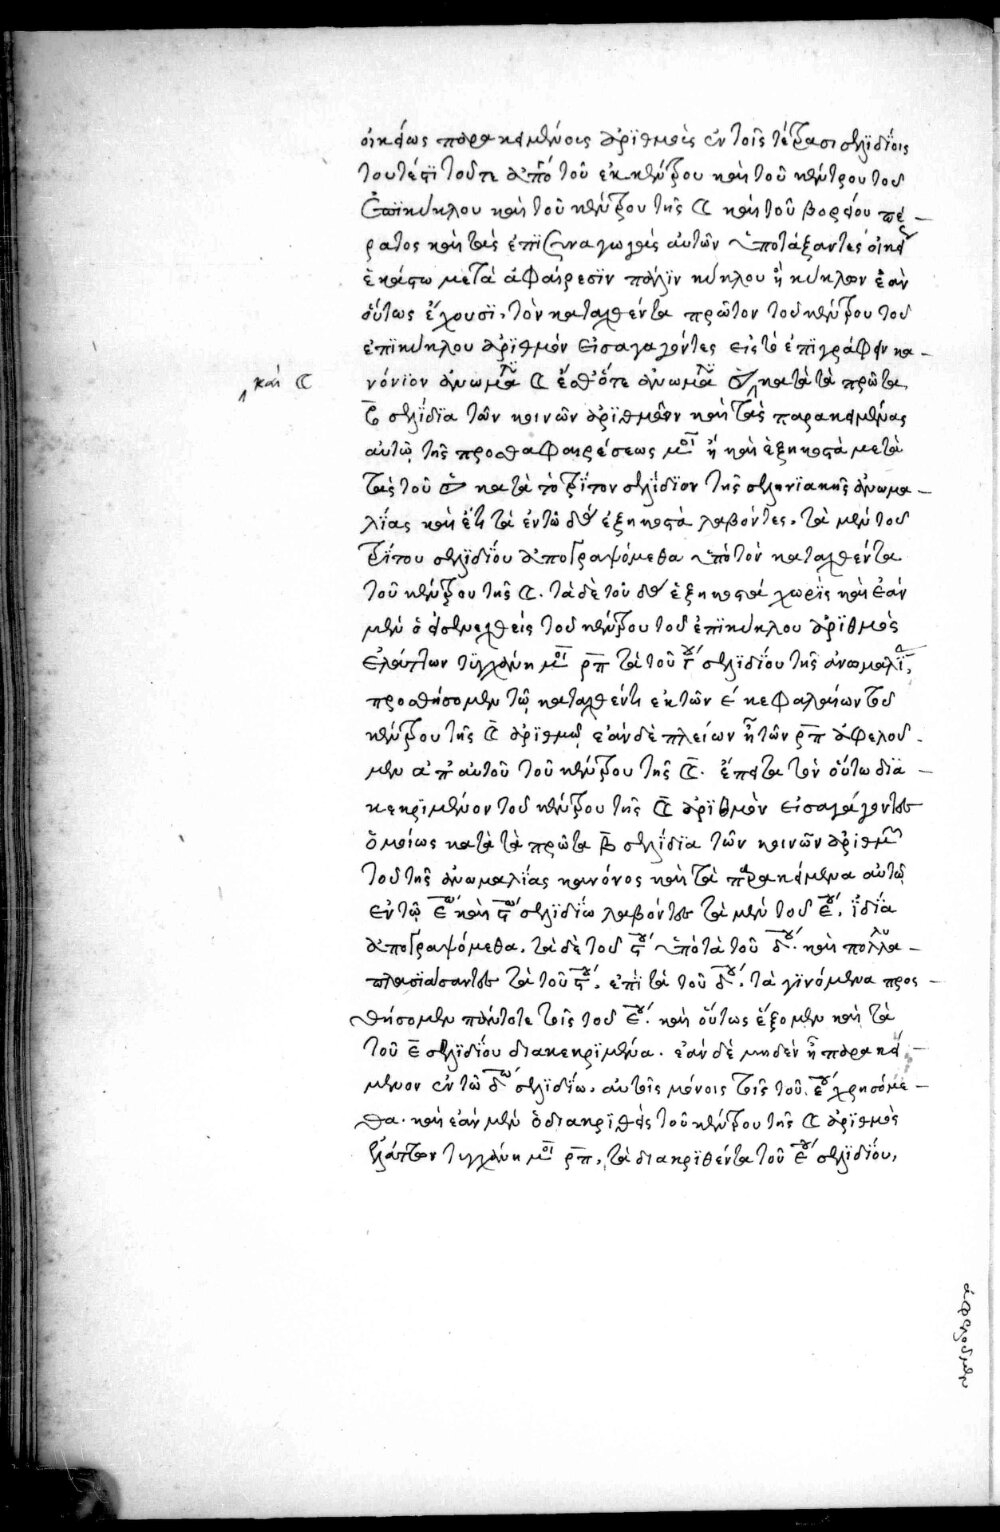 οἰκείως παρακειμένους ἀριθμοὺς ἐν τοῖς τέτρασι σελιδίοις
τουτέστι τοῦ τε ἀπὸ τοῦ ἐκκέντρου καὶ τοῦ κέντρου τοῦ
ἐπικύκλου καὶ τοῦ κέντρου τῆς ☾ καὶ τοῦ βορείου πέ-
ρατος καὶ τὰς ἐπισυναγωγὰς αὐτῶν ὑποτάξαντες οἰκεί
ἑκάστω μετὰ ἀφαίρεσιν πάλιν κύκλου ἢ κύκλων ἐὰν
οὕτως ἔχουσι, τὸν καταχθέντα πρῶτον τοῦ κέντρου τοῦ
ἐπικύκλου ἀριθμὸν εἰσαγαγόντες εἰς τὸ ἐπιγράφειν κα-
καὶ ☾
νόνιον ἀνωμαλ ☾ κατὰ τὰ πρῶτα
β σελίδια τῶν κοινῶν ἀριθμῶν καὶ τὰς παρακειμένας
αὐτῷ τῆς προσθαφαιρέσεως μοι ἢ καὶ ἑξηκοστὰ μετὰ
τὰς τοῦ κατὰ τὸ τρίτον σελίδιον τῆς σεληνιακῆς ἀνωμα-
λίας καὶ ἔτι τὰ ἐν τῶ δω ἑξηκοστὰ λαβόντες, τὰ μὲν τοῦ
τρίτου σελιδίου ἀπογραψόμεθα ὑπὸ τὸν καταχθέντα
τοῦ κέντρου τῆς ☾. τὰ δὲ τοῦ δου ἑξηκοστά χωρὶς καὶ ἐὰν
μὲν ὁ εἰσενεχθεὶς τοῦ κέντρου τοῦ ἐπικύκλου ἀριθμὸς
ἐλάττων τυγχάνη μοι ρπ τὰ τοῦ γου σελιδίου τῆς ἀνωμαλίας,
προσθήσομεν τῶ καταχθέντι ἐκ τῶν ε κεφαλαίων τοῦ
κέντρου τῆς ☾ ἀριθμῷ ἐὰν δὲ πλείων ἢ τῶν ρπ ἀφελοῦ-
μεν ἀπ αὐτοῦ τοῦ κέντρου τῆς ☾. ἔπειτα τὸν οὕτω δια-
κεκριμένον τοῦ κέντρου τῆς ☾ ἀριθμὸν εἰσαγάγοντες
ὁμοίως κατὰ τὰ πρῶτα β σελίδια τῶν κοινῶν ἀριθμῶν
τοῦ τῆς ἀνωμαλίας κανόνος καὶ τὰ παρακείμενα αὐτῷ
ἐν τῷ εω καὶ ϛω σελιδίω λαβόντες τὰ μὲν τοῦ εου, ἰδία
ἀπογραψόμεθα, τὰ δὲ τοῦ ϛου ὑπὸ τὰ τοῦ δου. καὶ πολλα-
πλασιάσαντες τὰ τοῦ ϛου, ἐπὶ τὰ τοῦ δου, τὰ γινόμενα προσ-
θήσομεν πάντοτε τοῖς τοῦ εου. καὶ οὕτως ἕξομεν καὶ τὰ
τοῦ ε σελιδίου διακεκριμένα. ἐὰν δὲ μηδὲν ἢ παρακεί-
μενον ἐν τῶ δω σελιδίω, αὐτοῖς μόνοις τοῖς τοῦ εου χρησόμε-
θα. καὶ ἐὰν μὲν ὁ διακριθεὶς τοῦ κέντρου τῆς ☾ ἀριθμὸς
ἐλάττων τυγχάνη μοι ρπ, τὰ διακριθέντα τοῦ εου σελιδίου,
ἀφελοῦμεν